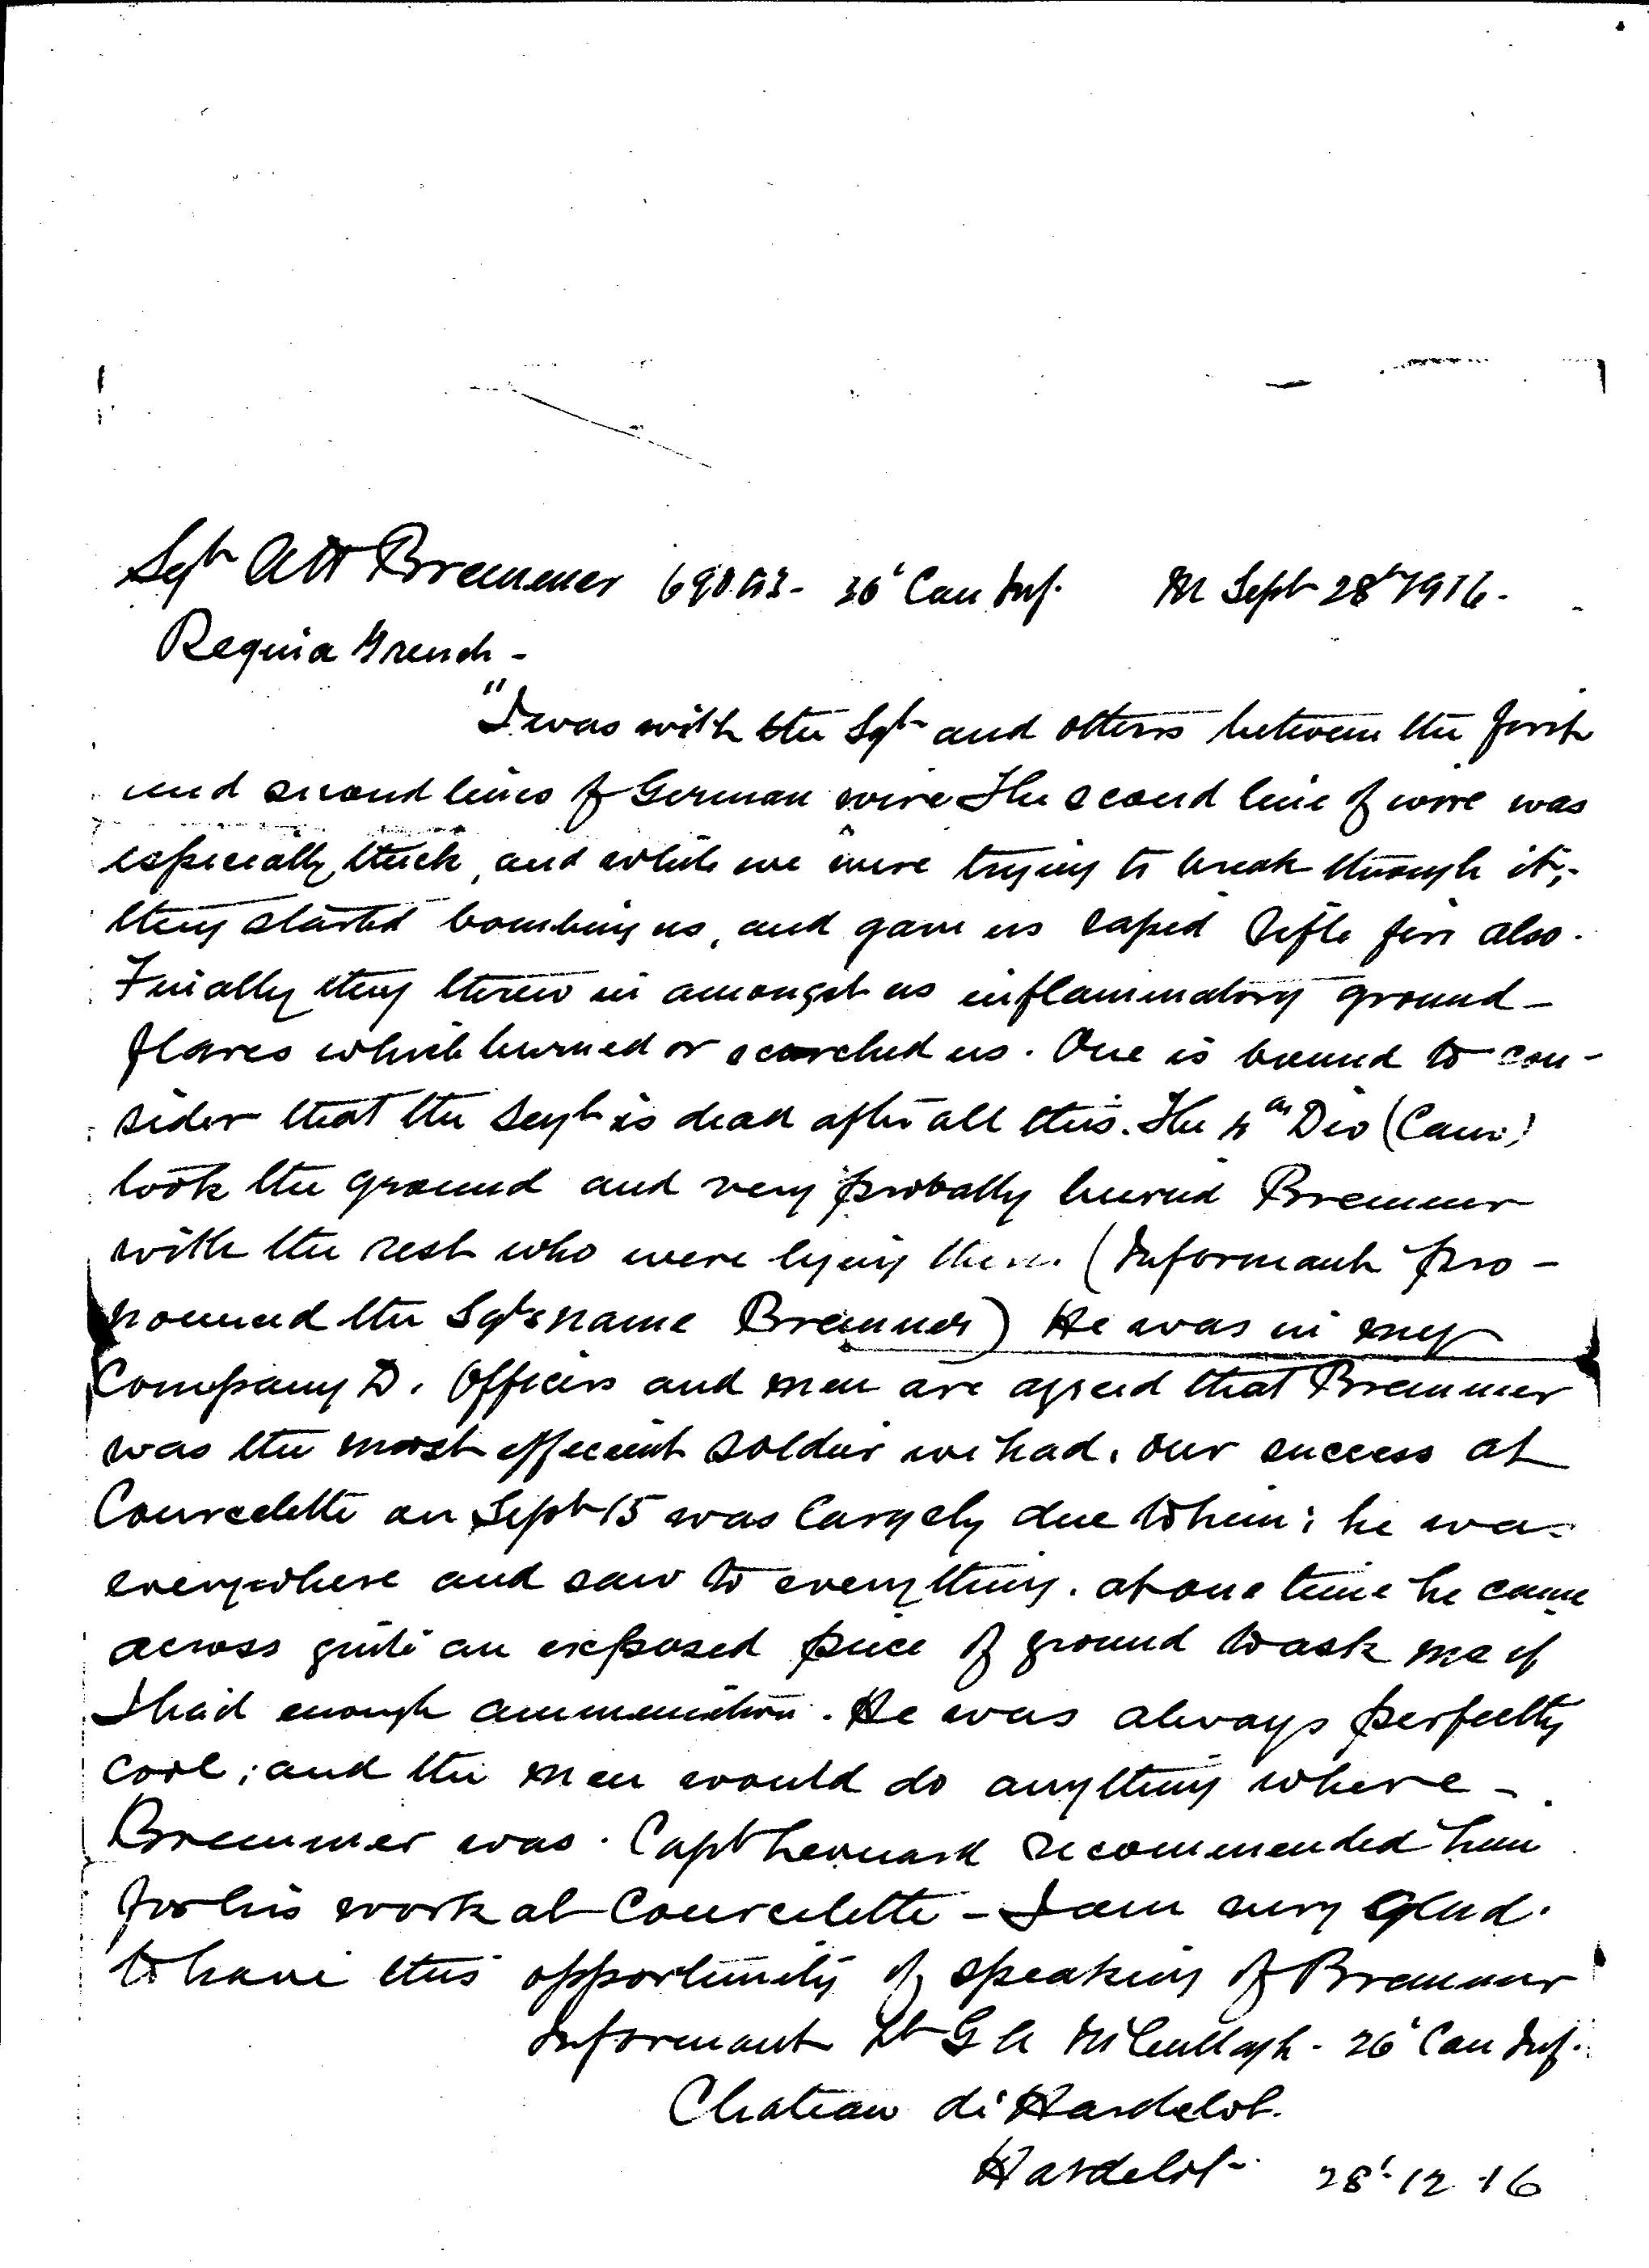 Sgt A H Bremner 69073- 26' Can Inf. M Sept 28th 1916.
Reguia Trench -
"I was with the Sgt and others between the first
and second lines of German wire The second line of wire was
especially thick, and while we were trying to break through it,-
they started bombing us, and gave us rapid rifle fire also.
Finally they threw in amongst us inflammatory ground-
flares which burned or scorched us. One is bound to con-
sider that the Sergt is dead after all this. The 4th Div (Can.)
took the ground and very probably buried Bremner
with the rest who were lying there. (Informant pro-
nounced the Sgt's name Bremner) He was in my
Company D. Officers and men are agreed that Bremner
was the most efficient soldier we had. Our success at
Courcelette on Sept 15 was largely due to him; he was
everywhere and saw to everything. At one time he came
across quite an exposed piece of ground to ask me if
I had enough ammunition. He was always perfectly
cool; and the men would do anything where-
Bremner was. Capt recommended him
for his work at Courcelette - I am very glad.
to have this opportunity of speaking of Bremner
Informant Lt G A McCullagh. 26' Can Inf.
Chateau de Hardelot.
Hardelot- 28'.12.16